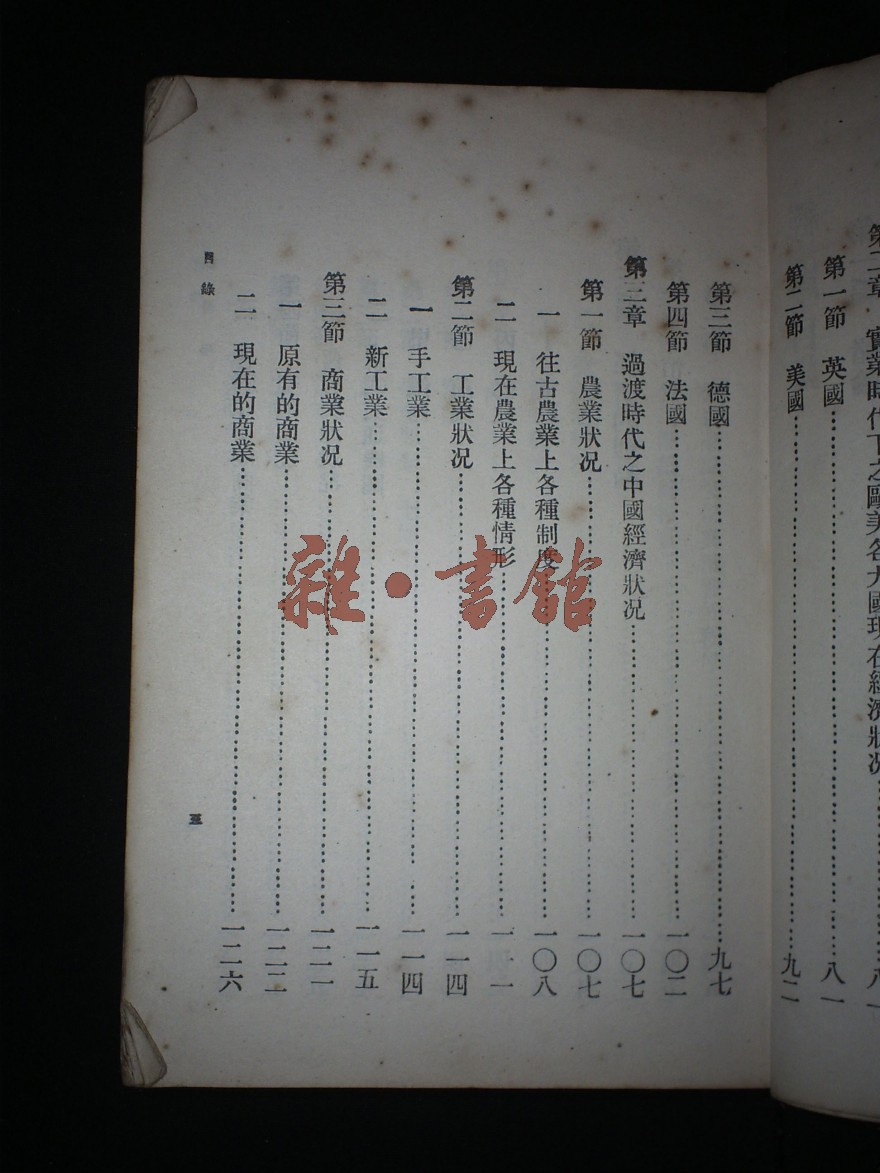 第二章 實業時代下之歐美各大國現在經濟狀况……八一
第一節 英國……八一
第二節 美國……九二
第三節 德國……九七
第四節 法國……一〇二
第三章 過渡時代之中國經濟狀况……一〇七
第一節 農業狀况……一〇七
一 往古農業上各種制度……一〇八
二 現在農業上各種情形……一一一
第二節 工業狀况……一一四
一 手工業……一一四
二 新工業……一一五
第三節 商業狀况……一二一
一 原有的商業……一二二
二 現在的商業……一二六
目錄
三
雜·書館